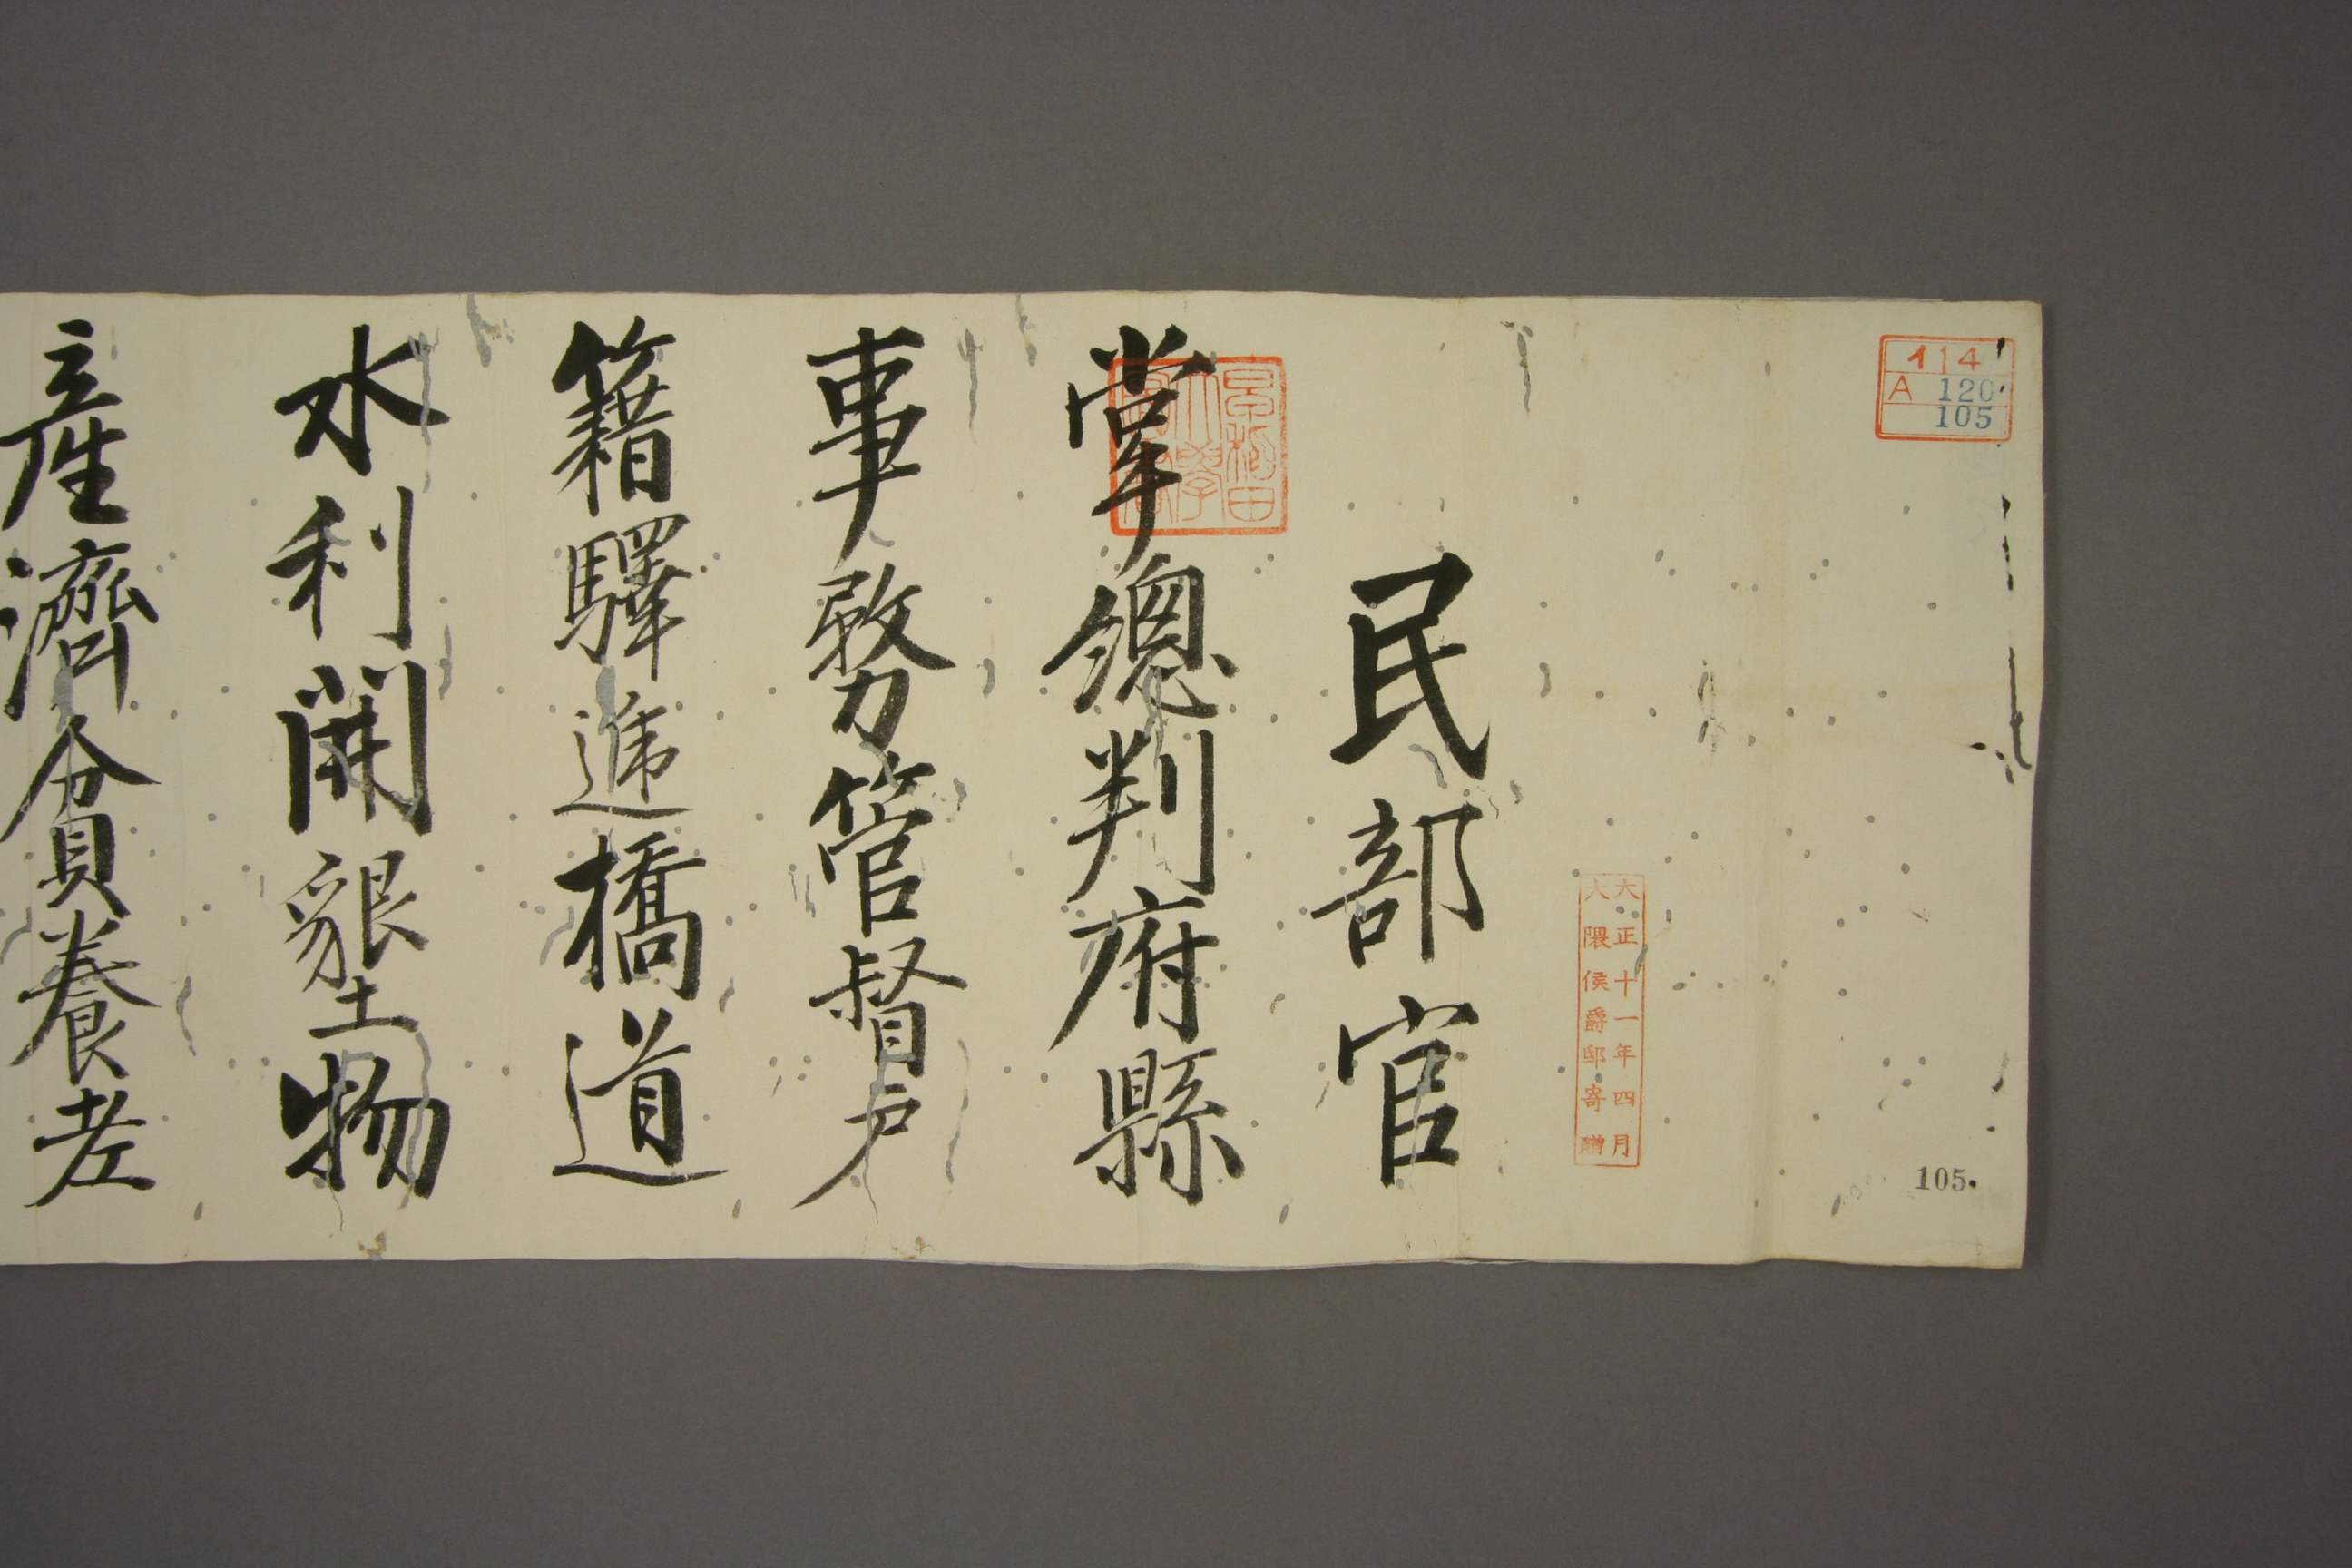 イ14
A 120
105
大正十一年四月
大隈侯爵邸寄贈
105.
民部官
早稲田
大學
掌總判府縣
事務管督戸
籍驛逓橋道
水利開墾物
産濟貧養老